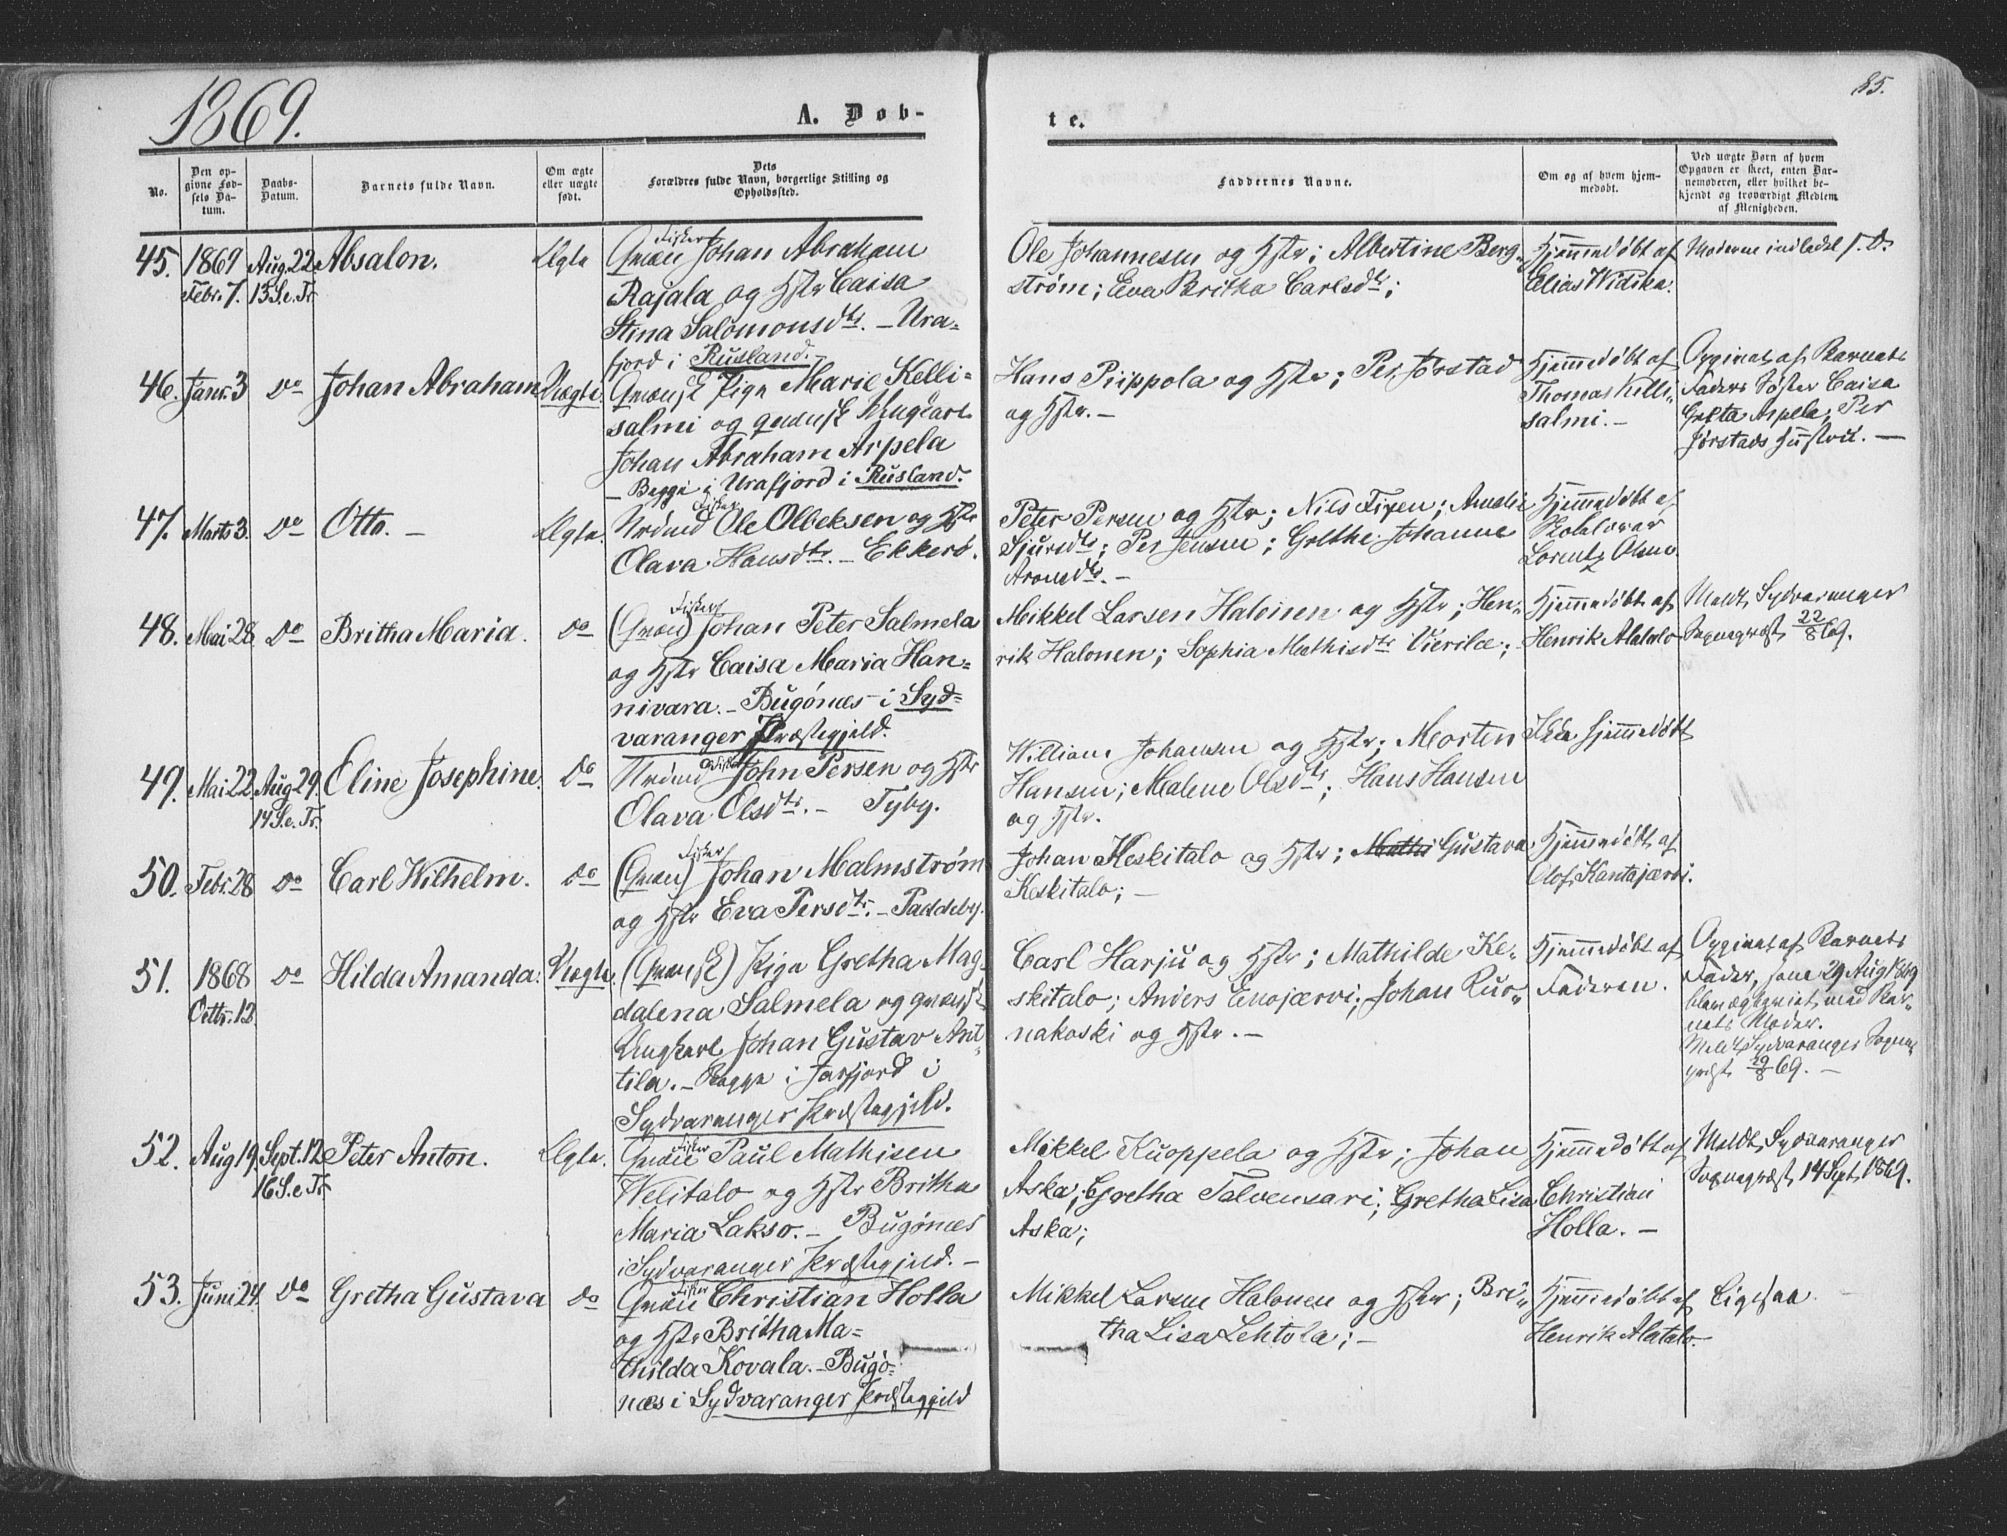 1869.
A. Døb-
te.
85.
No.
Den op-
givne Fød-
sels Da-
tum.
Daabs-
Datum.
Barnets fulde Navn.
Om ægte
eller uægte
født.
Dets
Forældres fulde Navn, borgerlige Stilling og
Opholdssted.
Faddernes Navne.
Om og af hvem hjem-
medøbt.
Ved uægte Børn af hvem
Opgaven er skeet, enten Bar-
nemoderen, eller hvilket be-
kjendt og troværdigt Medlem
af Menigheden.
45.
1869
Febr. 7.
Aug. 22
13 S. e. Tr.
Absalon.
Ægte
Fisker
Qvæn Johan Abraham
Rajala og Hstr Caisa
Stina Salomonsdtr. - Ura-
fjord i Rusland.
Ole Johannesen og Hstr; Albertine Berg-
strøm; Eva Britha Carlsdtr;
Hjemmedøbt af
Elias Widika.
Moderen indledet s. D.
46.
Janr. 3
Do
Johan Abraham
Uægte
Qvænsk Pige Marie Kelli-
salmi og qvænsk Ungkarl
Johan Abraham Arpela
- Begge i Urafjord i Rusland.
Hans Piippola og Hstr; Per Jørstad
og Hstr. -
Hjemmedøbt af
Thomas Kelli-
salmi. -
Opgivet af Barnets
Faders Søster Caisa
Greta Arpela, Per
Jørstads Hustru. -
47.
Marts 3.
Do
Otto. -
Ægte.
Fisker
Nrdmd Ole Olbeksen og Hstr
Olava Hansdtr. - Ekkerø.
Peter Persen og Hstr; Nils Fixen; Amalie
Sjursdtr; Per Jensen; Grethe Johanne
Aronsdtr. -
Hjemmedøbt af
Skolelærer
Lorentz Olsen.
48.
Mai 28
Do
Britha Maria.
Do
Fisker
(Qvæn) Johan Peter Salmela
og Hstr Caisa Maria Han-
nivara. - Bugønæs - i Syd-
varanger Præstegjeld.
Mikkel Larsen Halonen og Hstr; Hen-
rik Halonen; Sophia Mathisdtr Vierilæ;
Hjemmedøbt af
Henrik Alatalo
Meldt Sydvaranger
Sognepræst 22/8 69.
49.
Mai 22.
Aug 29.
14 S. e. Tr.
Eline Josephine.
Do
Fisker
Nrdmd John Persen og Hstr
Olava Olsdtr. - Tyby.
William Johansen og Hstr; Morten
Hansen; Malene Olsdtr; Hans Hansen
og Hstr.
Ikke hjemmedøbt
50.
Febr. 28
Do
Carl Wilhelm.
Do
Fisker
(Qvæn) Johan Malmstrøm
og Hstr Eva Persdtr. - Paddeby.
Johan Keskitalo og Hstr; Mathi Gustava
Keskitalo; -
Hjemmedøbt af
Olof Kantajærvi.
51.
1868
Octbr. 12.
Do
Hilda Amanda.
Uægte.
(Qvænsk) Pige Gretha Mag-
dalena Salmela og qvænsk
Ungkarl Johan Gustav Ant-
tila. - Begge i Jarfjord i
Sydvaranger Præstegjeld.
Carl Harju og Hstr; Mathilde Ke-
skitalo; Anders Enojærvi; Johan Ruo-
nakoski og Hstr. -
Hjemmedøbt af
Faderen.
Opgivet af Barnets
Fader, som 29 Aug 1869
blev ægteviet med Bar-
nets Moder.
Meldt Sydvaranger Sogne-
præst 29/8 69. -
52.
Aug 19.
Sept. 12
16 S. e. Tr.
Peter Anton.
Ægte.
Fisker
Qvæn Paul Mathisen
Welitalo og Hstr Britha
Maria Lakso. - Bugønæs
i Sydvaranger Præstegjeld. -
Mikkel Kuoppela og Hstr; Johan
Aska; Gretha Talvensari; Gretha Lisa
Aska;
Hjemmedøbt af
Christian
Holla. -
Meldt Sydvaranger
Sognepræst 14 Sept. 1869.
53.
Juni 24.
Do
Gretha Gustava
Do
Fisker
Qvæn Christian Holla
og Hstr Britha Ma-
thilda Kovala. - Bugø-
næs i Sydvaranger Præstegjeld
Mikkel Larsen Halonen og Hstr; Bri-
tha Lisa Lehtola; -
Hjemmedøbt af
Henrik Alatalo.
Ligesaa